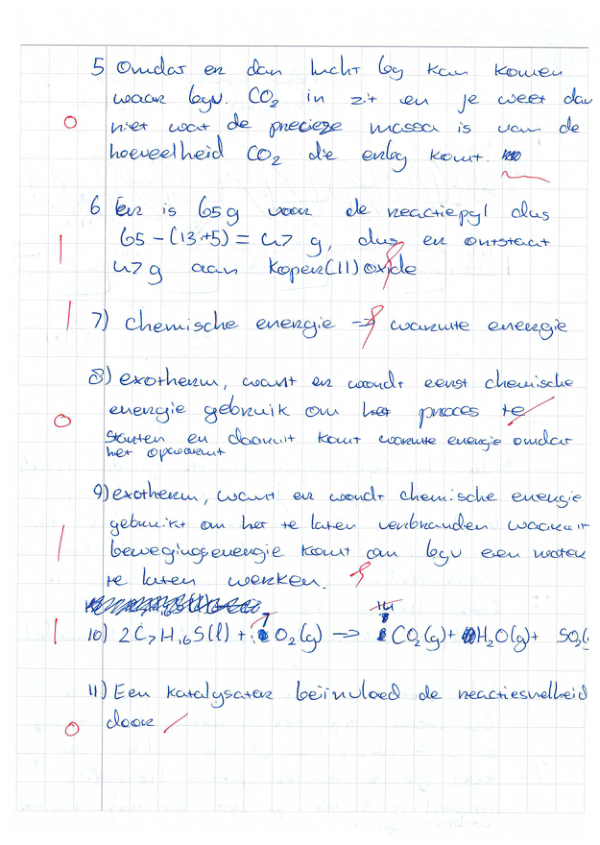 5 Omdat er dan lucht bij kan komen
waar bijv. CO₂ in zit en je weet dan
0 niet wat de precieze massa is van de
hoeveelheid CO₂ die erbij komt.
6 Er is 65g voor de reactiepijl dus
1 65-(13+5) = 47 g, dus er ontstaat
47g aan koper(II)oxide
1 7) chemische energie → warmte energie
8) exotherm, want er wordt eerst chemische
0 energie gebruik om het proces te
starten en daaruit komt warmte energie omdat
het opwarmt
9) exotherm, want er wordt chemische energie
1 gebruikt om het te laten verbranden waaruit
bewegingsenergie komt om bijv een motor
te laten werken.
1 10) 2C₇H₁₆S(l) + O₂(g) → CO₂(g) + H₂O(g) + SO₂(
11) Een katalysator beïnvloed de reactiesnelheid
0 door